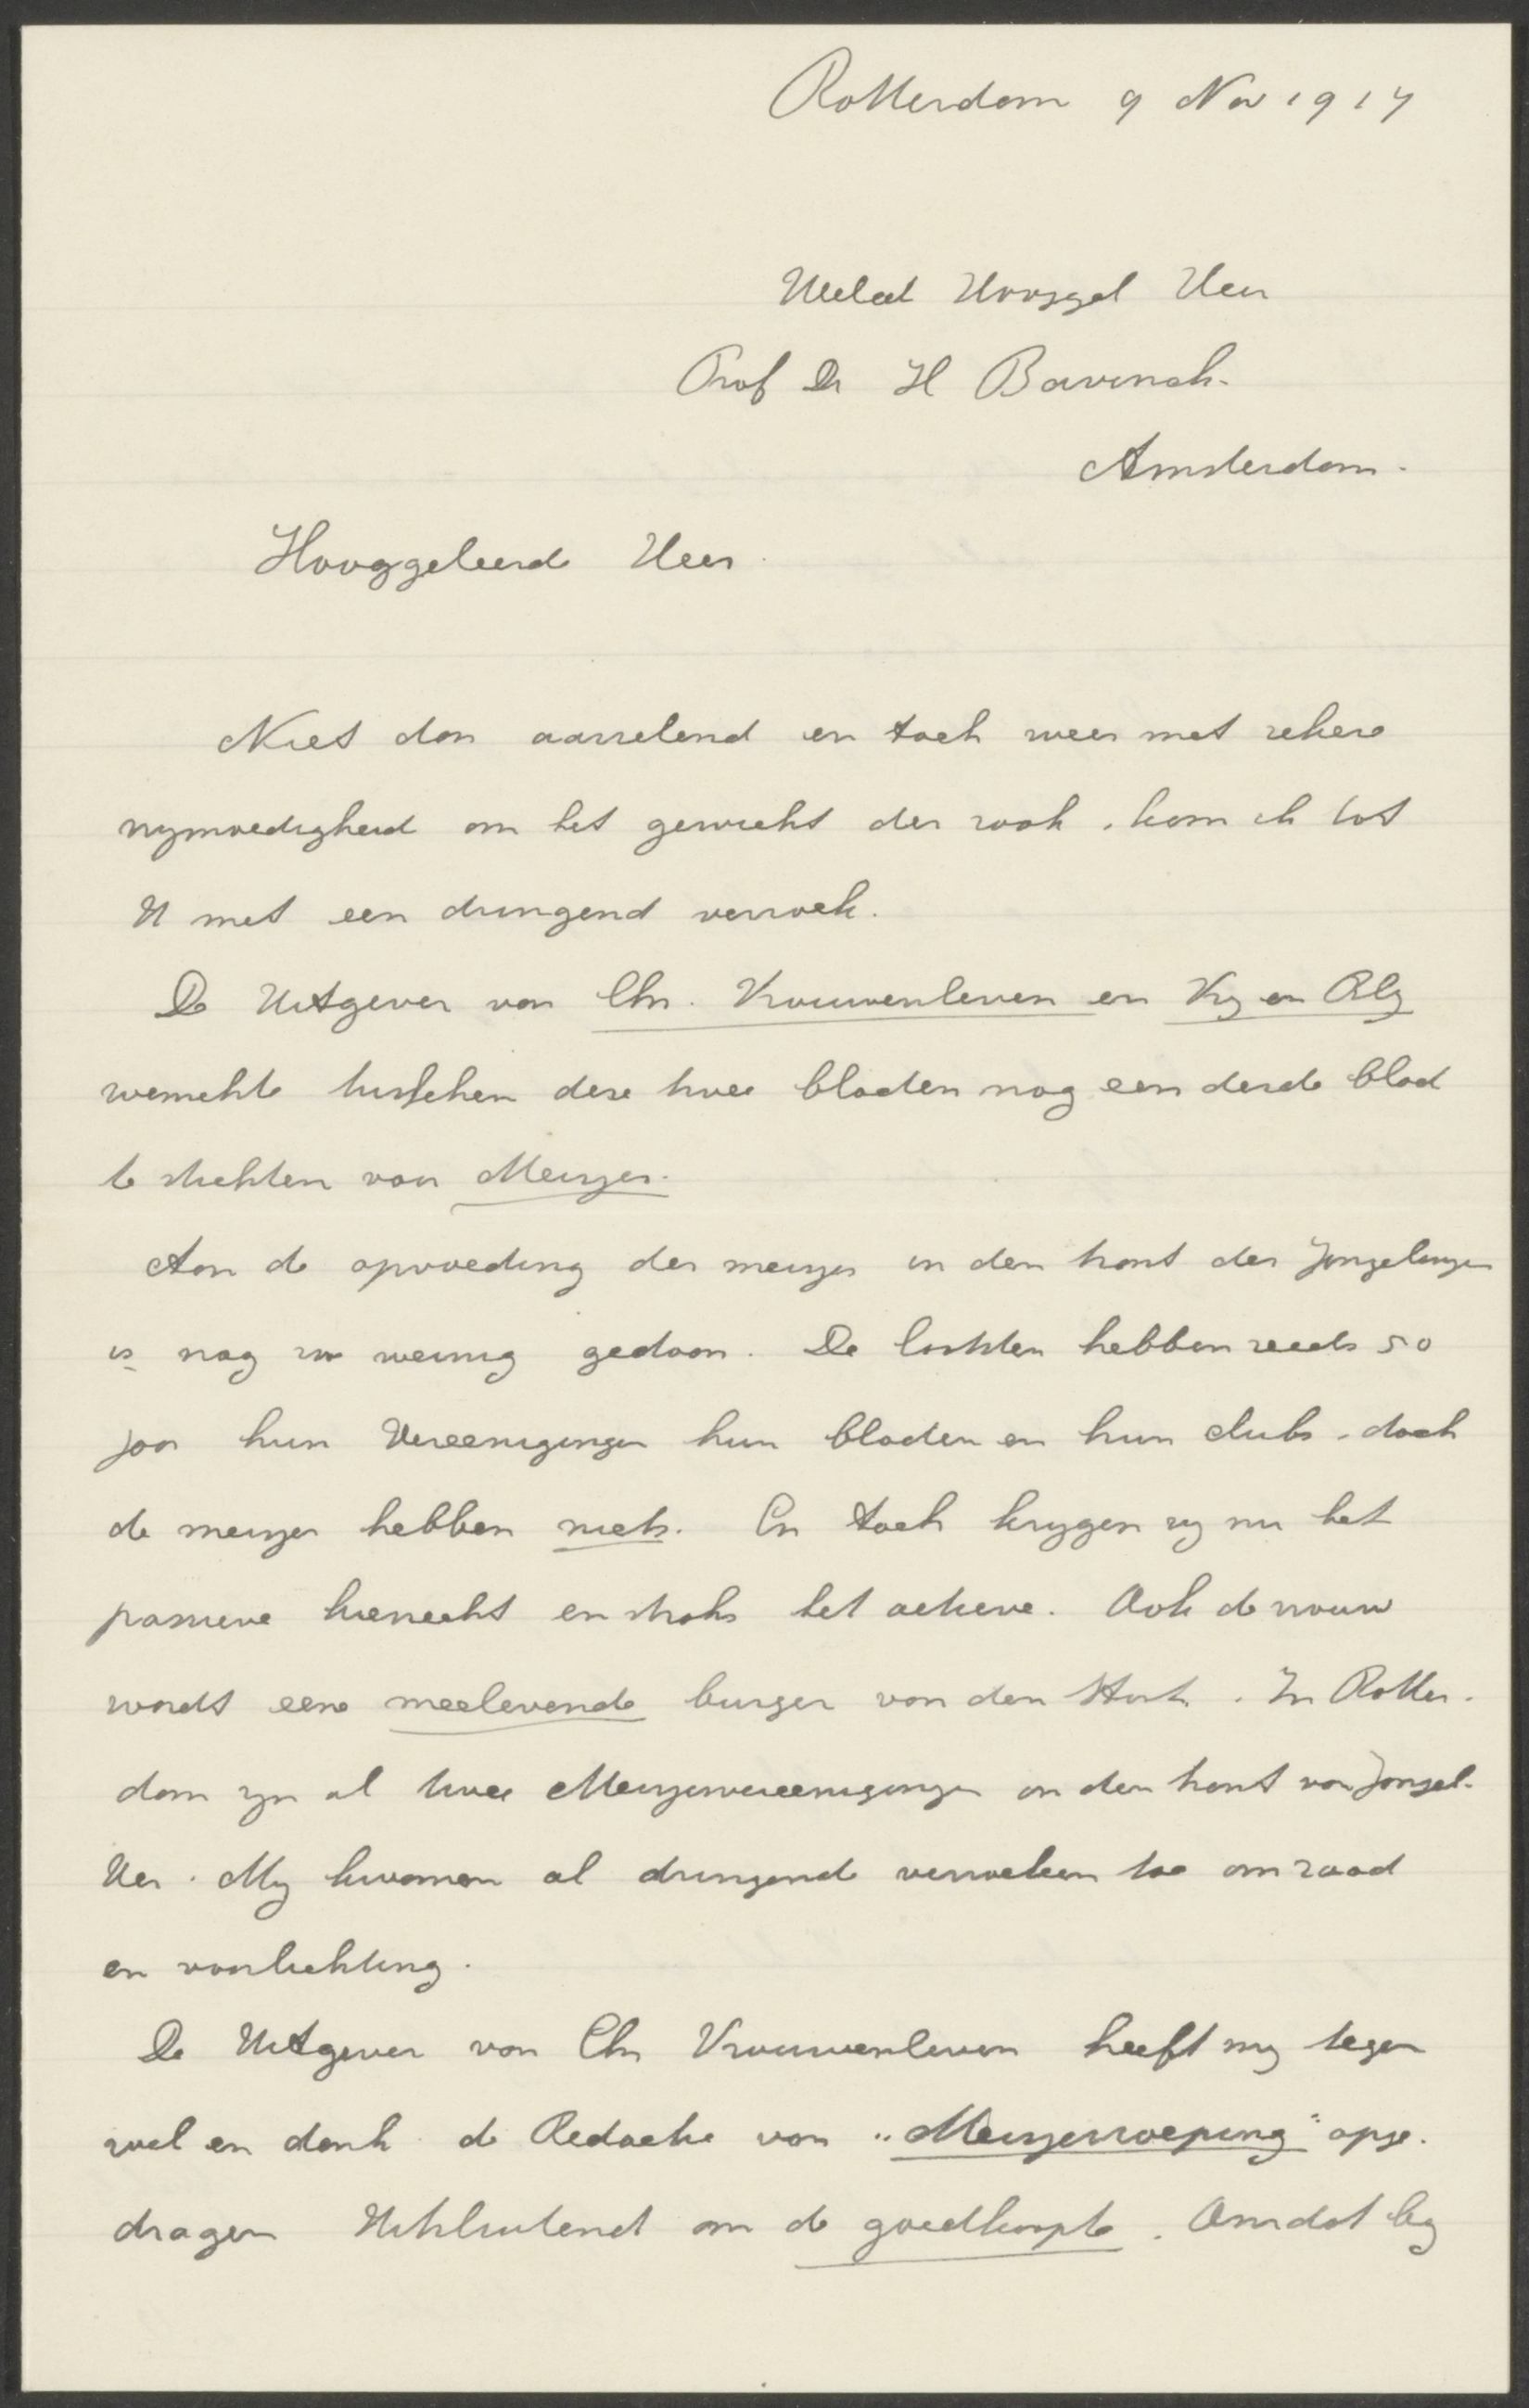 Rotterdam 9 Nov 1917
WelEd Hooggel Heer
Prof Dr H Bavinck.
Amsterdam.
Hooggeleerde Heer.
Niet dan aarzelend en toch weer met zekere
vrijmoedigheid om het gewicht der zaak, kom ik tot
U met een dringend verzoek.
De Uitgever van Chr. Vrouwenleven en Vrij en Blij
wenschte tusschen deze twee bladen nog een derde blad
te stichten voor Meisjes.
Aan de opvoeding der meisjes in den trant der Jongelingen
is nog zoo weinig gedaan. De laatsten hebben reeds 50
jaar hun Vereenigingen hun bladen en hun clubs, doch
de meisjes hebben niets. En toch krijgen zij nu het
passieve kiesrecht en straks het actieve. Ook de vrouw
wordt eene meelevende burger van den Staat. In Rotter-
dam zijn al twee Meisjesvereenigingen in den trant van Jongel.
Ver. Mij kwamen al dringende verzoeken toe om raad
en voorlichting.
De Uitgever van Chr Vrouwenleven heeft mij tegen
wil en dank de Redactie van "Meisjesroeping" opge-
dragen Uitsluitend om de goedkoopte. Omdat bij